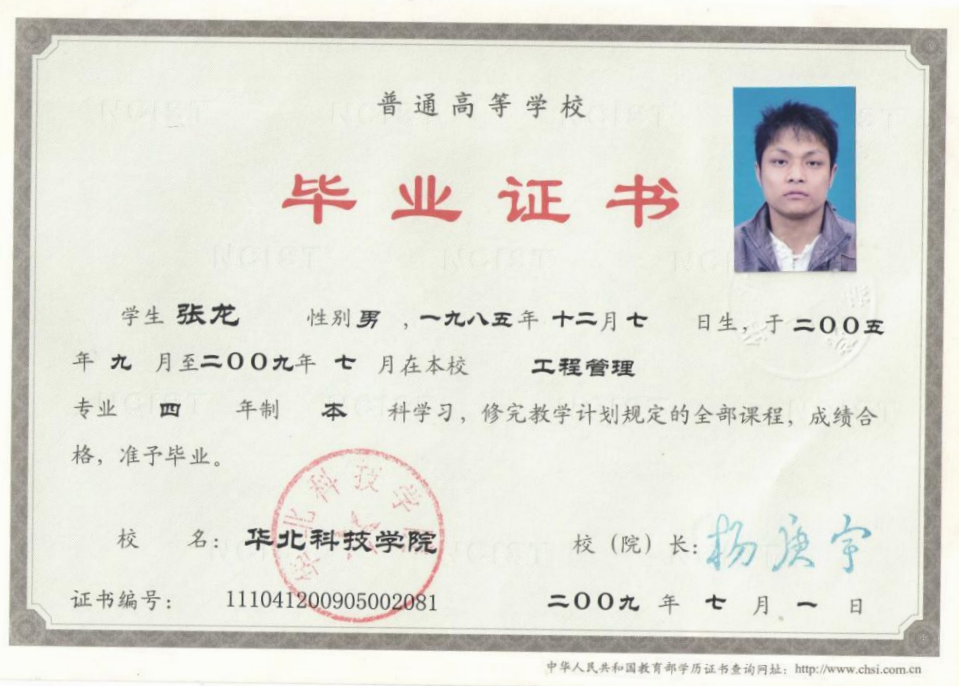 普通高等学校
毕业证书
学生 张龙 性别 男 ，一九八五年 十二月七 日生，于 二〇〇五
年 九 月至二〇〇九年 七 月在本校 工程管理
专业 四 年制 本 科学习，修完教学计划规定的全部课程，成绩合
格，准予毕业。
华北科技学
校 名：华北科技学院 校（院）长：杨庚宇
证书编号： 111041200905002081 二〇〇九 年 七 月 一 日
中华人民共和国教育部学历证书查询网址：http://www.chsi.com.cn